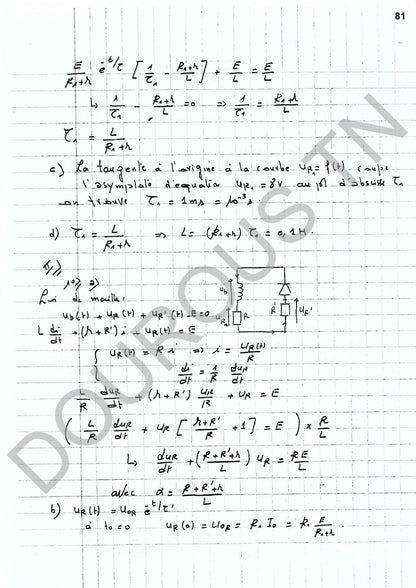 81
E/(R₁+r) e^(-t/τ) [1/τ₁ - (R₁+r)/L] + E/L = E/L
↳ 1/τ₁ - (R₁+r)/L = 0 ⇒ 1/τ₁ = (R₁+r)/L
τ₁ = L/(R₁+r)
c) La tangente à l'origine à la courbe uR₁ = f(t) coupe
l'asymptote d'équation uR₁ = 8V au pt d'abscisse τ₁
on trouve τ₁ = 1ms = 10⁻³ s.
d) τ₁ = L/(R₁+r) ⇒ L = (R₁+r) τ₁ = 0,1H.
II/
1°/ a)
Loi de maille :
ub(t) + uR(t) + uR'(t) - E = 0
L di/dt + (r+R') i + uR(t) = E
uR(t) = R i ⇒ i = uR(t)/R
di/dt = 1/R duR/dt
L/R duR/dt + (r+R') uR/R + uR = E
( L/R duR/dt + uR [ (r+R')/R + 1 ] = E ) × R/L
↳ duR/dt + ((R+R'+r)/L) uR = RE/L
avec α = (R+R'+r)/L
b) uR(t) = U0R e^(-t/τ')
à t0 = 0 uR(0) = U0R = R₁ I0 = R₁ E/(R₁+r).
ub
uR
R
R'
uR'
DOUROUS TN